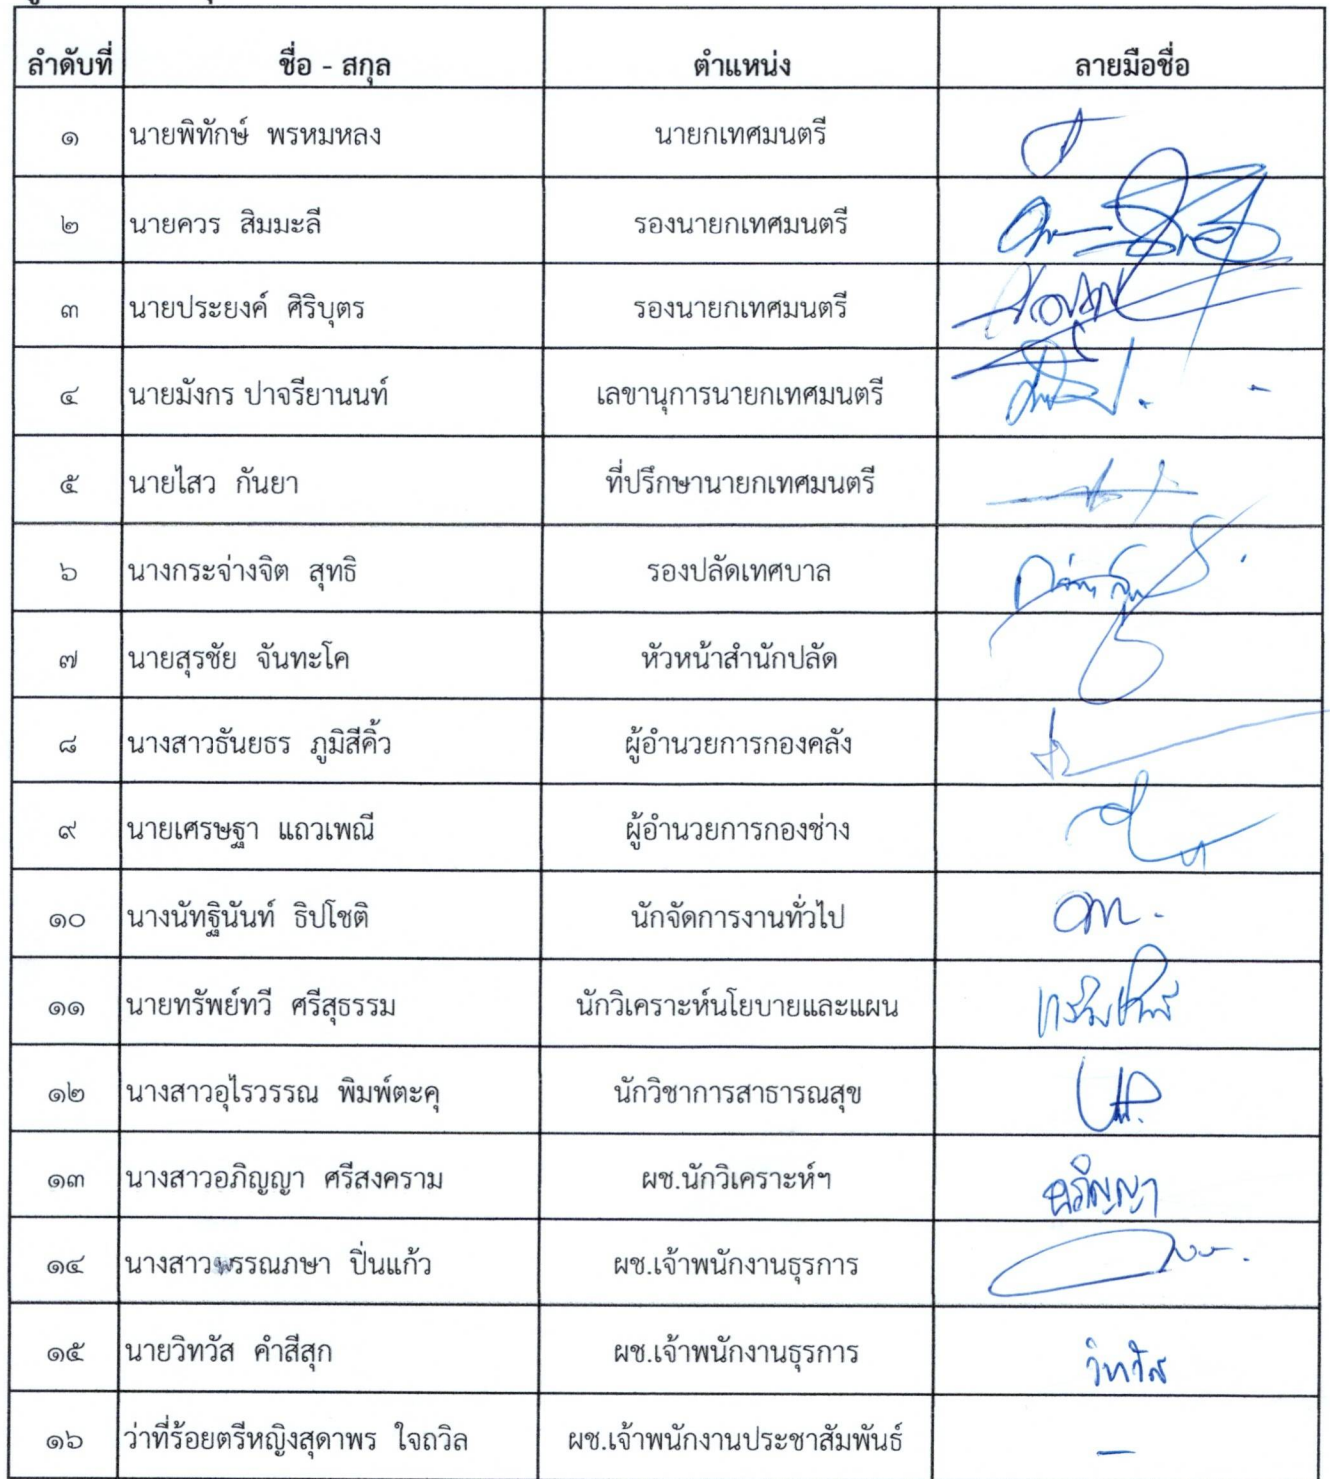 ลำดับที่ ชื่อ - สกุล ตำแหน่ง ลายมือชื่อ
๑ นายพิทักษ์ พรหมหลง นายกเทศมนตรี
๒ นายควร สิมมะลี รองนายกเทศมนตรี
๓ นายประยงค์ ศิริบุตร รองนายกเทศมนตรี
๔ นายมังกร ปาจรียานนท์ เลขานุการนายกเทศมนตรี
๕ นายไสว กันยา ที่ปรึกษานายกเทศมนตรี
๖ นางกระจ่างจิต สุทธิ รองปลัดเทศบาล
๗ นายสุรชัย จันทะโค หัวหน้าสำนักปลัด
๘ นางสาวธันยธร ภูมิสีคิ้ว ผู้อำนวยการกองคลัง
๙ นายเศรษฐา แถวเพณี ผู้อำนวยการกองช่าง
๑๐ นางนัทฐินันท์ ธิปโชติ นักจัดการงานทั่วไป
๑๑ นายทรัพย์ทวี ศรีสุธรรม นักวิเคราะห์นโยบายและแผน
๑๒ นางสาวอุไรวรรณ พิมพ์ตะคุ นักวิชาการสาธารณสุข
๑๓ นางสาวอภิญญา ศรีสงคราม ผช.นักวิเคราะห์ฯ อภิญญา
๑๔ นางสาวพรรณภษา ปิ่นแก้ว ผช.เจ้าพนักงานธุรการ
๑๕ นายวิทวัส คำสีสุก ผช.เจ้าพนักงานธุรการ วิทวัส
๑๖ ว่าที่ร้อยตรีหญิงสุดาพร ใจถวิล ผช.เจ้าพนักงานประชาสัมพันธ์ –